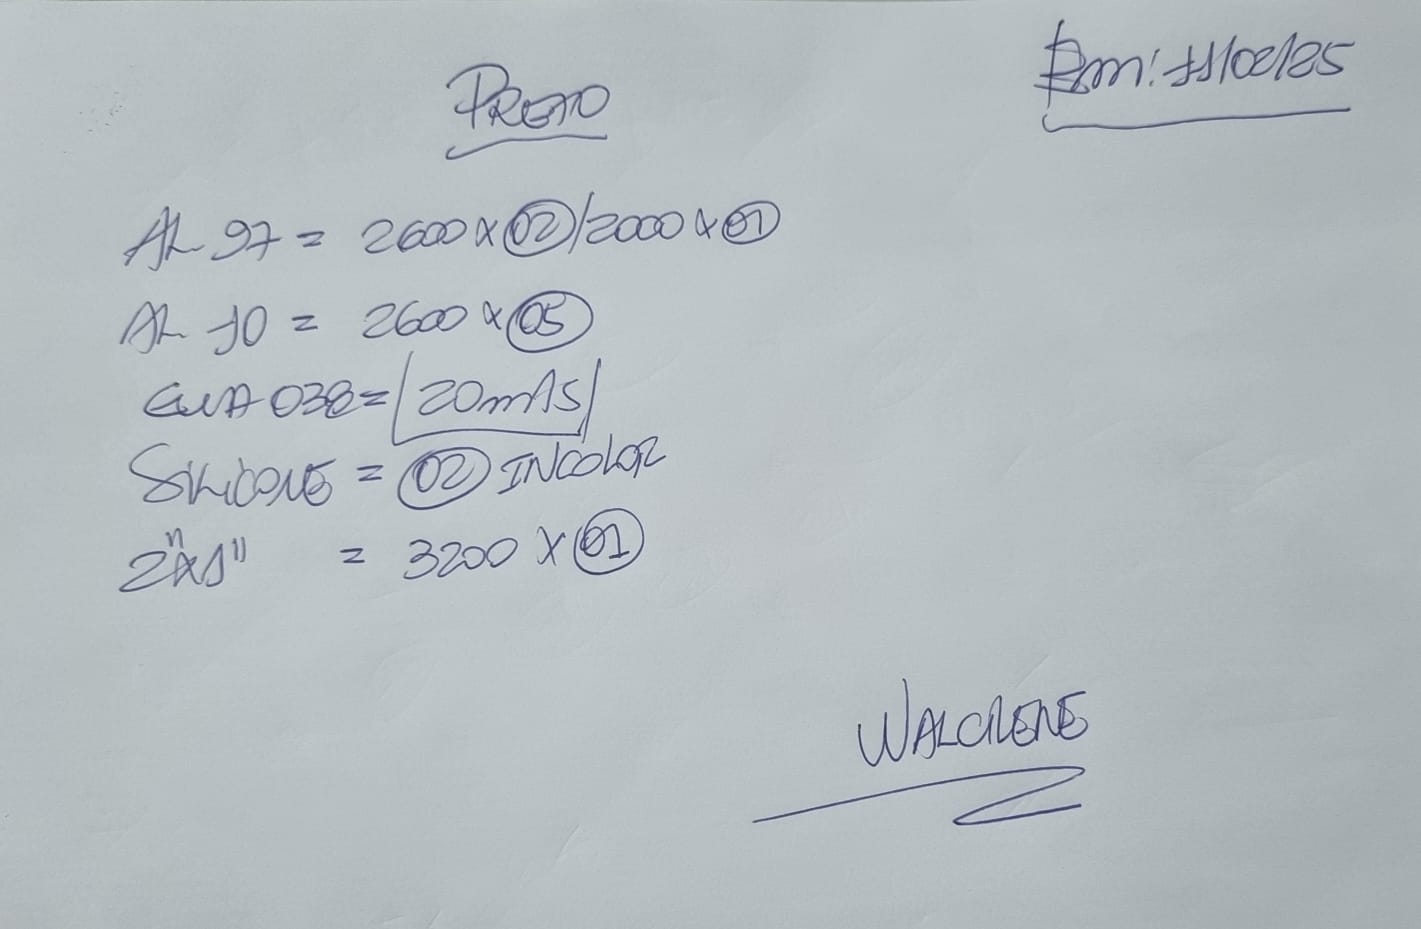 PRETO
Em: 11/02/25
AL 97 = 2600 x 02 / 2000 x 01
AL 10 = 2600 x 05
GUA 038 = 20 mts
SILICONE = 02 INCOLOR
2"x1" = 3200 x 01
WALCILENE